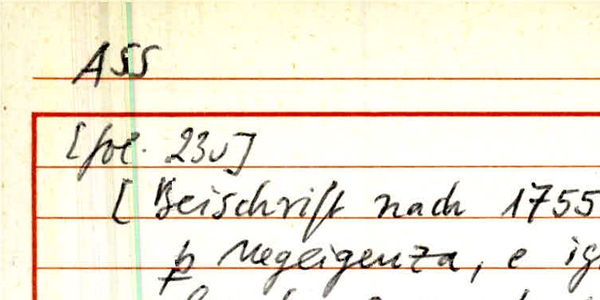 ASS
[fol. 23v]
[Beischrift nach 1755
ꝑ Negeigenza, e ig